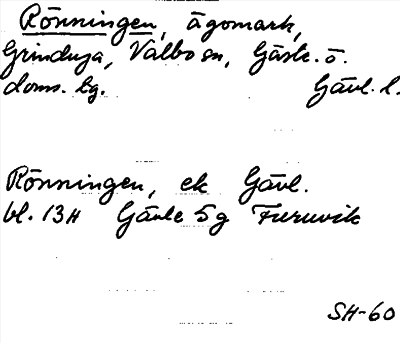 Rönningen, ägomark,
Grinduga, Valbo sn, Gästr. ö.
doms. tg. Gävl. l.
Rönningen, ek Gävl.
bl. 13H Gävle 5g Furuvik
SH-60